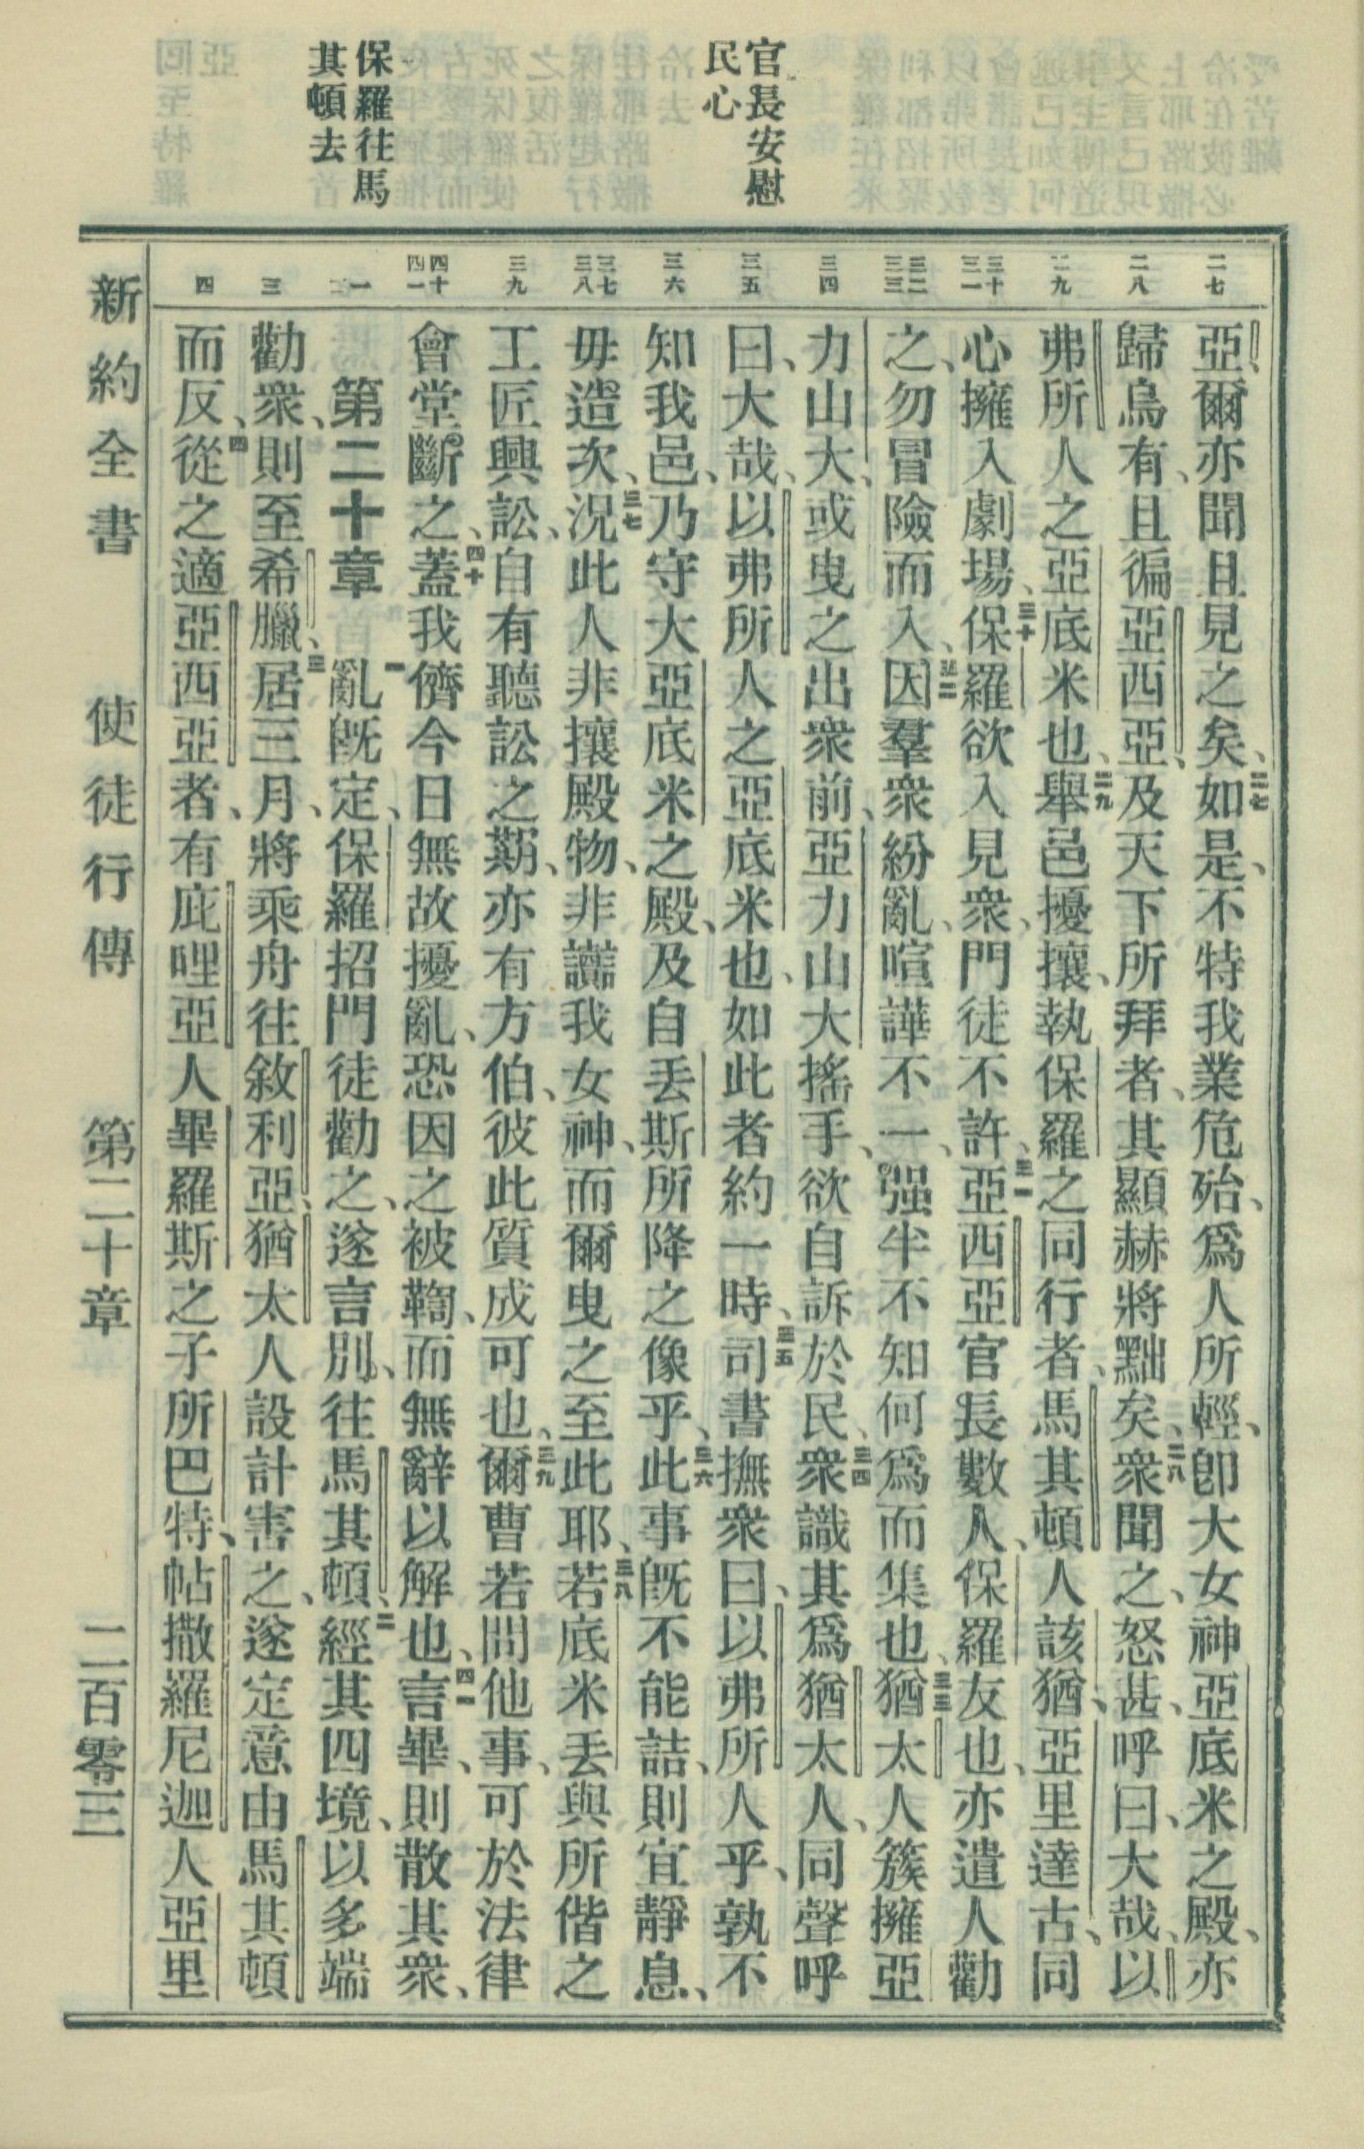 官長安慰
民心
保羅往馬
其頓去
二七
二八
二九
三十 三一
三二 三三
三四
三五
三六
三七 三八
三九
四十 四一
一 二
三
四
亞、爾亦聞且見之矣、二七如是、不特我業危殆、爲人所輕、卽大女神亞底米之殿、亦
歸烏有、且徧亞西亞、及天下所拜者、其顯赫將黜矣、二八衆聞之、怒甚、呼曰、大哉、以
弗所人之亞底米也、二九舉邑擾攘、執保羅之同行者、馬其頓人該猶、亞里達古、同
心擁入劇場、三十保羅欲入見衆、門徒不許、三一亞西亞官長數人、保羅友也、亦遣人勸
之、勿冒險而入、三二因羣衆紛亂、喧譁不一、强半不知何爲而集也、三三猶太人簇擁亞
力山大、或曳之出衆前、亞力山大搖手、欲自訴於民、三四衆識其爲猶太人、同聲呼
曰、大哉、以弗所人之亞底米也、如此者約一時、三五司書撫衆曰、以弗所人乎、孰不
知我邑、乃守大亞底米之殿、及自丟斯所降之像乎、三六此事旣不能詰、則宜靜息、
毋造次、三七況此人非攘殿物、非讟我女神、而爾曳之至此耶、三八若底米丟與所偕之
工匠興訟、自有聽訟之期、亦有方伯、彼此質成可也、三九爾曹若問他事、可於法律
會堂斷之、四十蓋我儕今日無故擾亂、恐因之被鞫、而無辭以解也、四一言畢、則散其衆、
第二十章 一亂旣定、保羅招門徒勸之、遂言別、往馬其頓、二經其四境、以多端
勸衆、則至希臘、三居三月、將乘舟往敘利亞、猶太人設計害之、遂定意由馬其頓
而反、四從之適亞西亞者、有庇哩亞人畢羅斯之子所巴特、帖撒羅尼迦人亞里
新約全書 使徒行傳 第二十章 二百零三